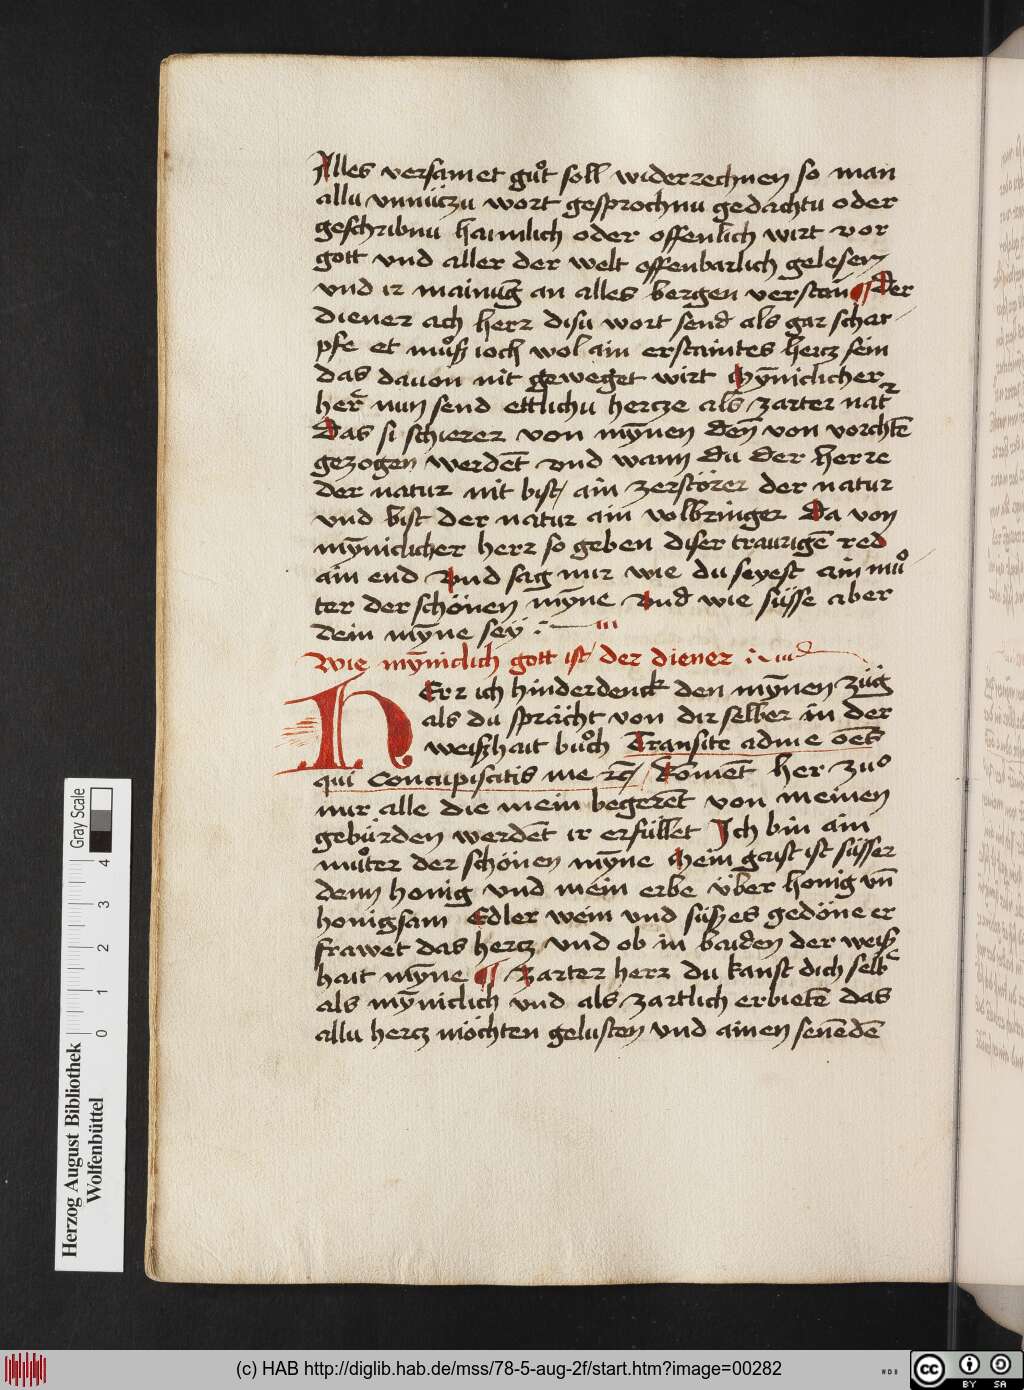 Alles versamet guͦt soll widerrechnen so man
allu unnüczu wort gesprochnu gedachtu oder
geschribnu haimlich oder offenlich wirt vor
gott vnd aller der welt offenbarlich gelesen
vnd ir mainūg an alles bergen verstan ¶ Der
diener ach herr disu wort send als gar schar
pfe et muͦß ioch wol ain erstaintes hercz sein
das dauon nit geweget wirt Mȳniclicher
her̄ nun send ettlichu hercze als zarter nat᷑
Das si schierer von mȳnen deñ von vorchtē
gezogen werdēt vnd wann du der herre
der natur nit bist / ain zerstörer der natur
vnd bist der natur ain volbringer Da von
mȳniclicher herr so geben diser traurigē red
ain end vnd sag mir wie du seyest ain muͦ
ter der schönen mȳne vnd wie süsse aber
dein mȳne sey :
Wie mȳniclich gott ist / der diener :
HErr ich hinderdenck den mȳnen züg
als du sprächt von dir selber in der
weißhait buͦch Transite ad me oēs
qui concupiscitis me ꝛc̄ / Komēt her zuͦ
mir alle die mein begerēt von meinen
gebürden werdēt ir erfüllet Ich bin ain
muͦter der schönen mȳne Mein gaist ist süsser
denn honig vnd mein erbe über honig vn̄
honigsam Edler wein vnd süsses gedöne er
frawet das hercz vnd ob in baiden der weiß
hait mȳne ¶ Zarter herr du kanst dich selb
als mȳniclich vnd als zartlich erbietē das
allu hercz möchten gelusten vnd ainen senēdē
Gray Scale
0 1 2 3 4
Herzog August Bibliothek
Wolfenbüttel
(c) HAB http://diglib.hab.de/mss/78-5-aug-2f/start.htm?image=00282
WDB
cc BY SA